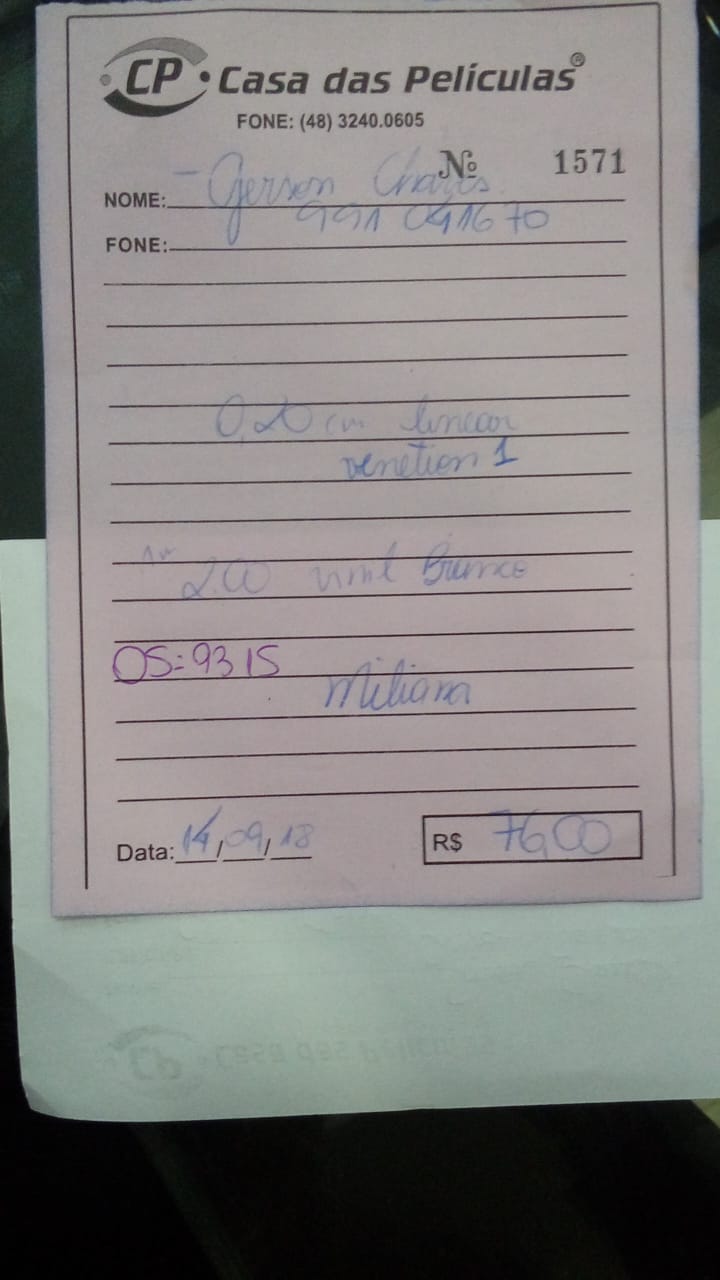 CP • Casa das Películas®
FONE: (48) 3240.0605
Nº 1571
NOME: Gerson
FONE: 991 091670
0,20 cm linear
venetion 1
2.00 vinil Branco
OS: 9315
Miliana
Data: 14/09/18
R$ 76,00